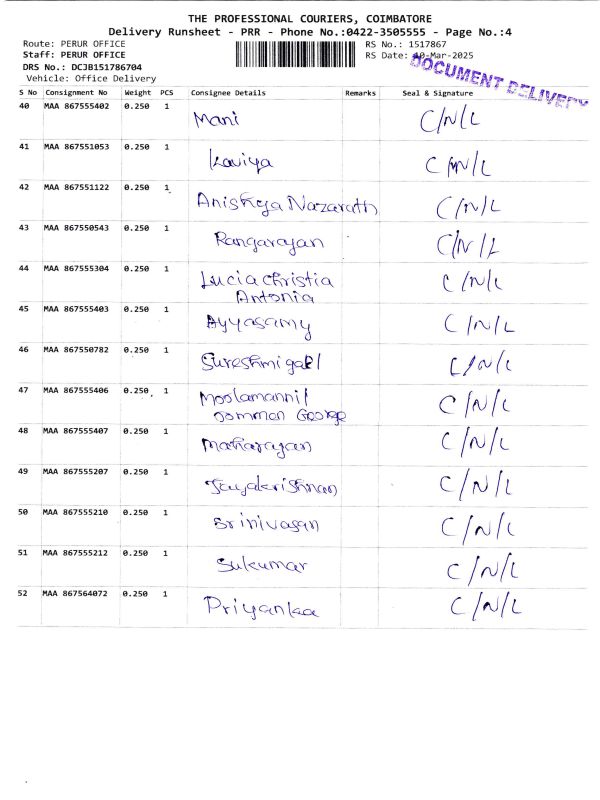 THE PROFESSIONAL COURIERS, COIMBATORE
Delivery Runsheet - PRR - Phone No.:0422-3505555 - Page No.:4
Route: PERUR OFFICE RS No.: 1517867
Staff: PERUR OFFICE RS Date: 10-Mar-2025
DRS No.: DCJB151786704
DOCUMENT DELIVERY
Vehicle: Office Delivery
S No Consignment No Weight PCS Consignee Details Remarks Seal & Signature
40 MAA 867555402 0.250 1 Mani C/N/L
41 MAA 867551053 0.250 1 Kaviya C/N/L
42 MAA 867551122 0.250 1 Anishya Nazarath C/N/L
43 MAA 867550543 0.250 1 Rangarayan C/N/L
44 MAA 867555304 0.250 1 Lucia christia C/N/L
Antonia
45 MAA 867555403 0.250 1 Ayyasamy C/N/L
46 MAA 867550782 0.250 1 C/N/L
47 MAA 867555406 0.250 1 Moolamannil C/N/L
Jommon George
48 MAA 867555407 0.250 1 Maharayan C/N/L
49 MAA 867555207 0.250 1 Jayakrishnan C/N/L
50 MAA 867555210 0.250 1 Srinivasan C/N/L
51 MAA 867555212 0.250 1 Sukumar C/N/L
52 MAA 867564072 0.250 1 Priyankaa C/N/L